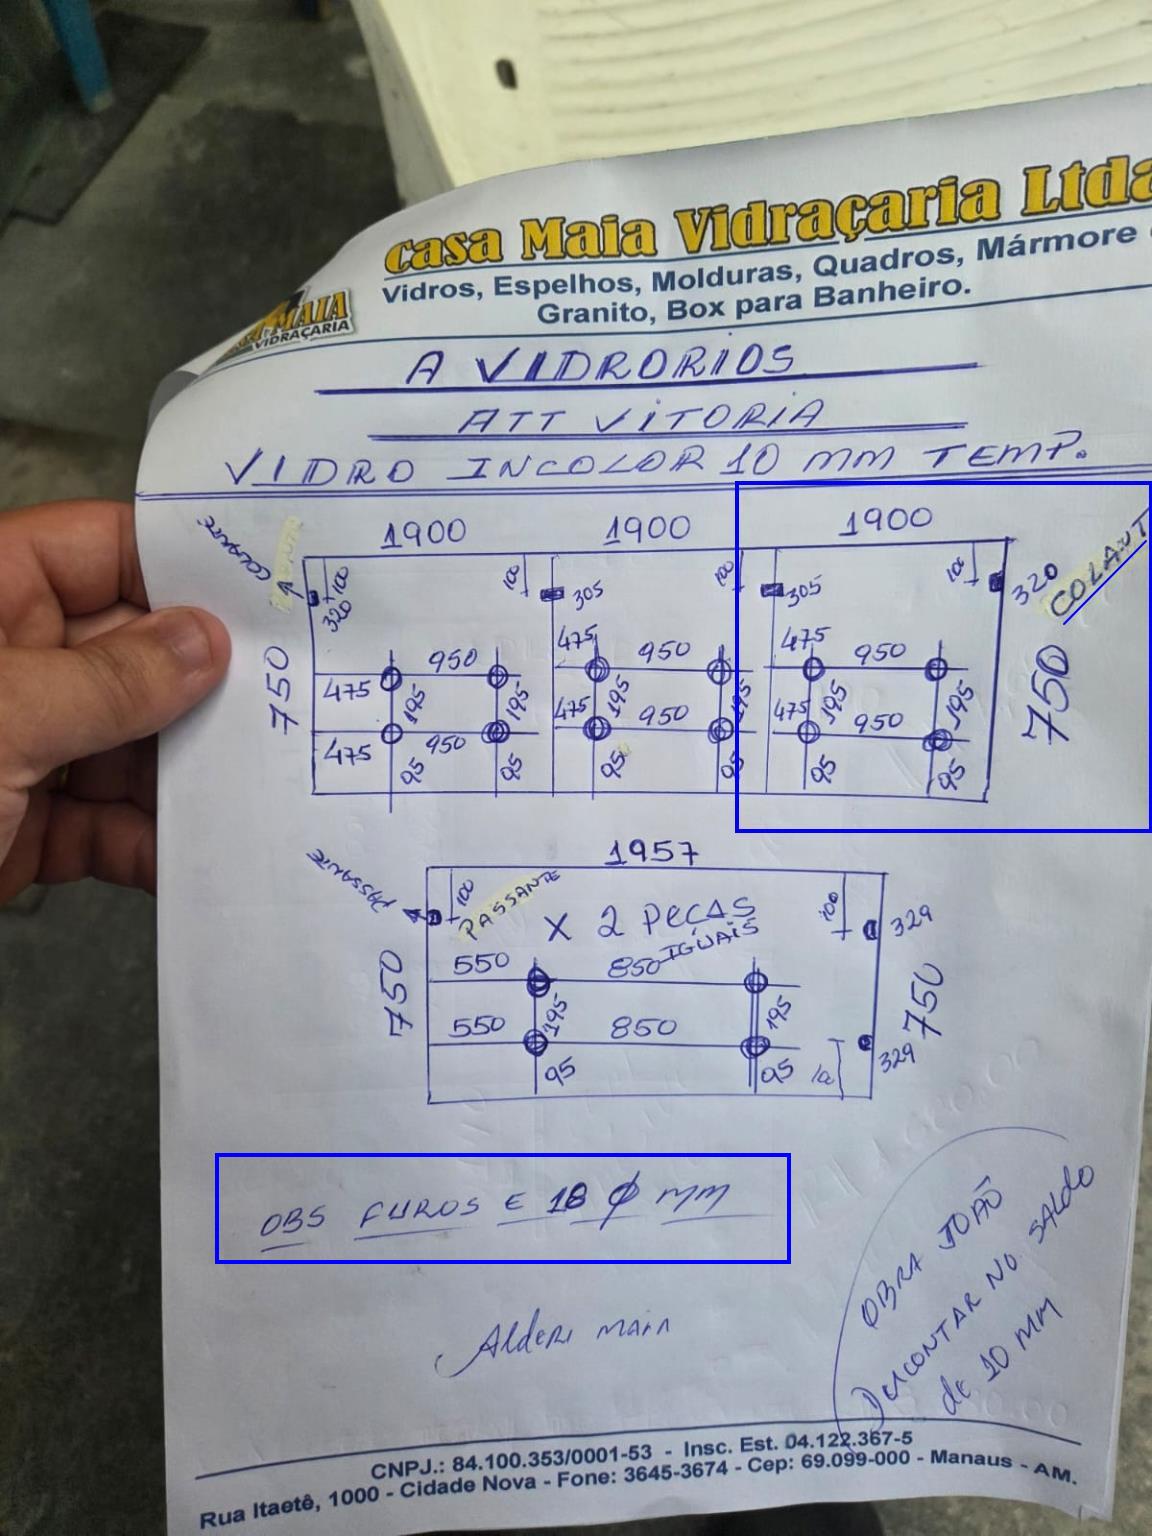 Casa Maia Vidraçaria Ltda
Vidros, Espelhos, Molduras, Quadros, Mármore
Granito, Box para Banheiro.
MAIA
VIDRAÇARIA
A VIDRORIOS
ATT VITORIA
VIDRO INCOLOR 10 MM TEMP.
1900 1900 1900
COLANTE 100 320 100 305 100 305 100 320 COLANT
750 475 950 195 195 475 950 195 195 475 950 195 195 750
475 950 95 95 475 950 95 95 475 950 95 95
1957
PASSANTE 100 PASSANTE X 2 PEÇAS 100 329
IGUAIS
750 550 850 195 195 750
550 850 329
95 95
OBS FUROS E 18 Ø MM
OBRA JOÃO
DESCONTAR NO SALDO
de 10 MM
Alderi maia
CNPJ.: 84.100.353/0001-53 - Insc. Est. 04.122.367-5
Rua Itaetê, 1000 - Cidade Nova - Fone: 3645-3674 - Cep: 69.099-000 - Manaus - AM.